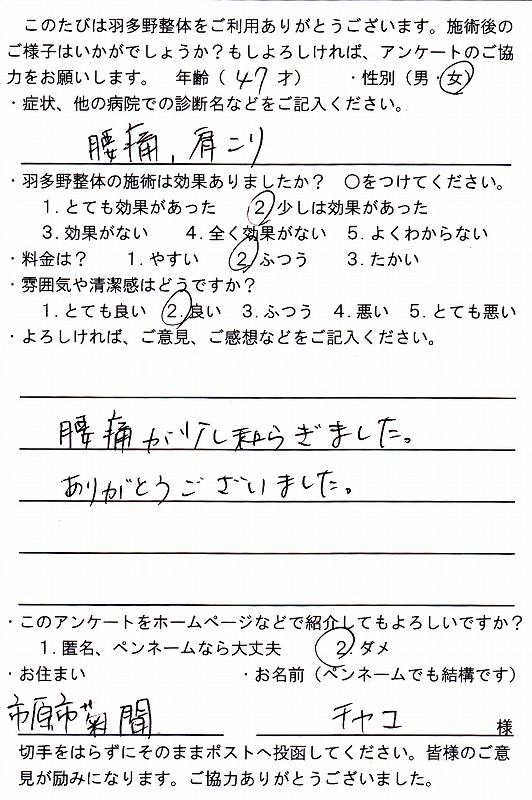 このたびは羽多野整体をご利用ありがとうございます。施術後の
ご様子はいかがでしょうか？もしよろしければ、アンケートのご協
力をお願いします。　年齢（ 47 才）　・性別（男・女）
・症状、他の病院での診断名などをご記入ください。
腰痛，肩こり
・羽多野整体の施術は効果ありましたか？　○をつけてください。
1. とても効果があった　2 少しは効果があった
3. 効果がない　4. 全く効果がない　5. よくわからない
・料金は？　1. やすい　2. ふつう　3. たかい
・雰囲気や清潔感はどうですか？
1. とても良い　2. 良い　3. ふつう　4. 悪い　5. とても悪い
・よろしければ、ご意見、ご感想などをご記入ください。
腰痛が少し和らぎました。
ありがとうございました。
・このアンケートをホームページなどで紹介してもよろしいですか？
1. 匿名、ペンネームなら大丈夫　2. ダメ
・お住まい　・お名前（ペンネームでも結構です）
市原市菊間　チャコ　様
切手をはらずにそのままポストへ投函してください。皆様のご意
見が励みになります。ご協力ありがとうございました。